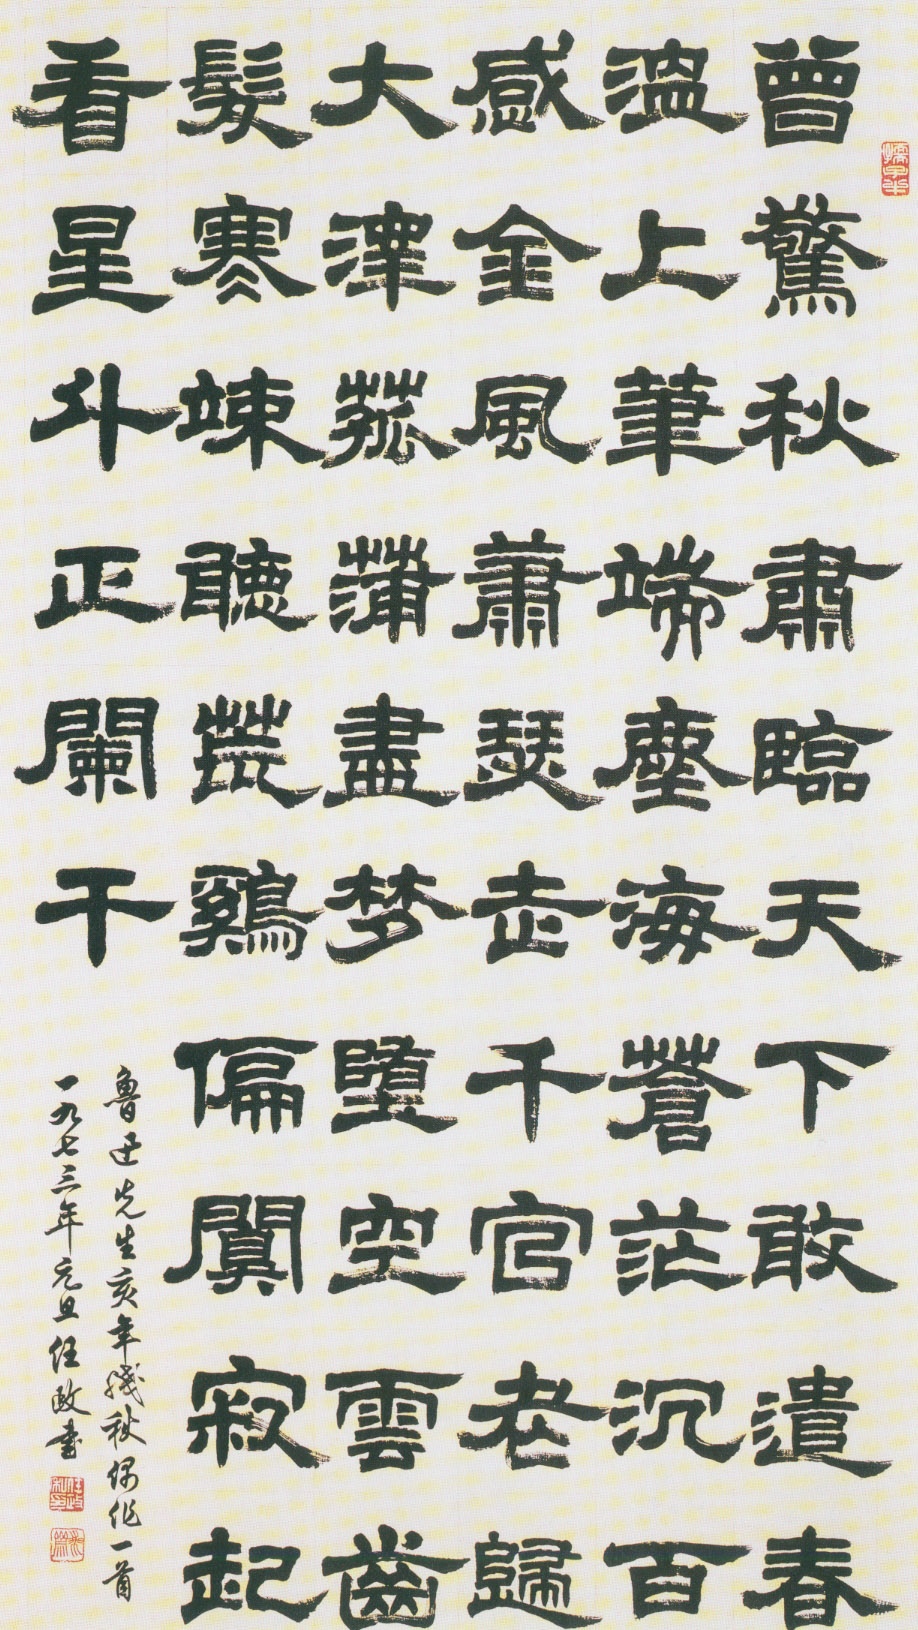 曾驚秋肅臨天下敢遣春
温上筆端塵海蒼茫沉百
感金風蕭瑟走千官老歸
大澤菰蒲盡梦墮空雲齒
髮寒竦聽荒鷄偏闃寂起
看星斗正闌干
魯迅先生亥年殘秋偶作一首
一九七三年元旦任政書